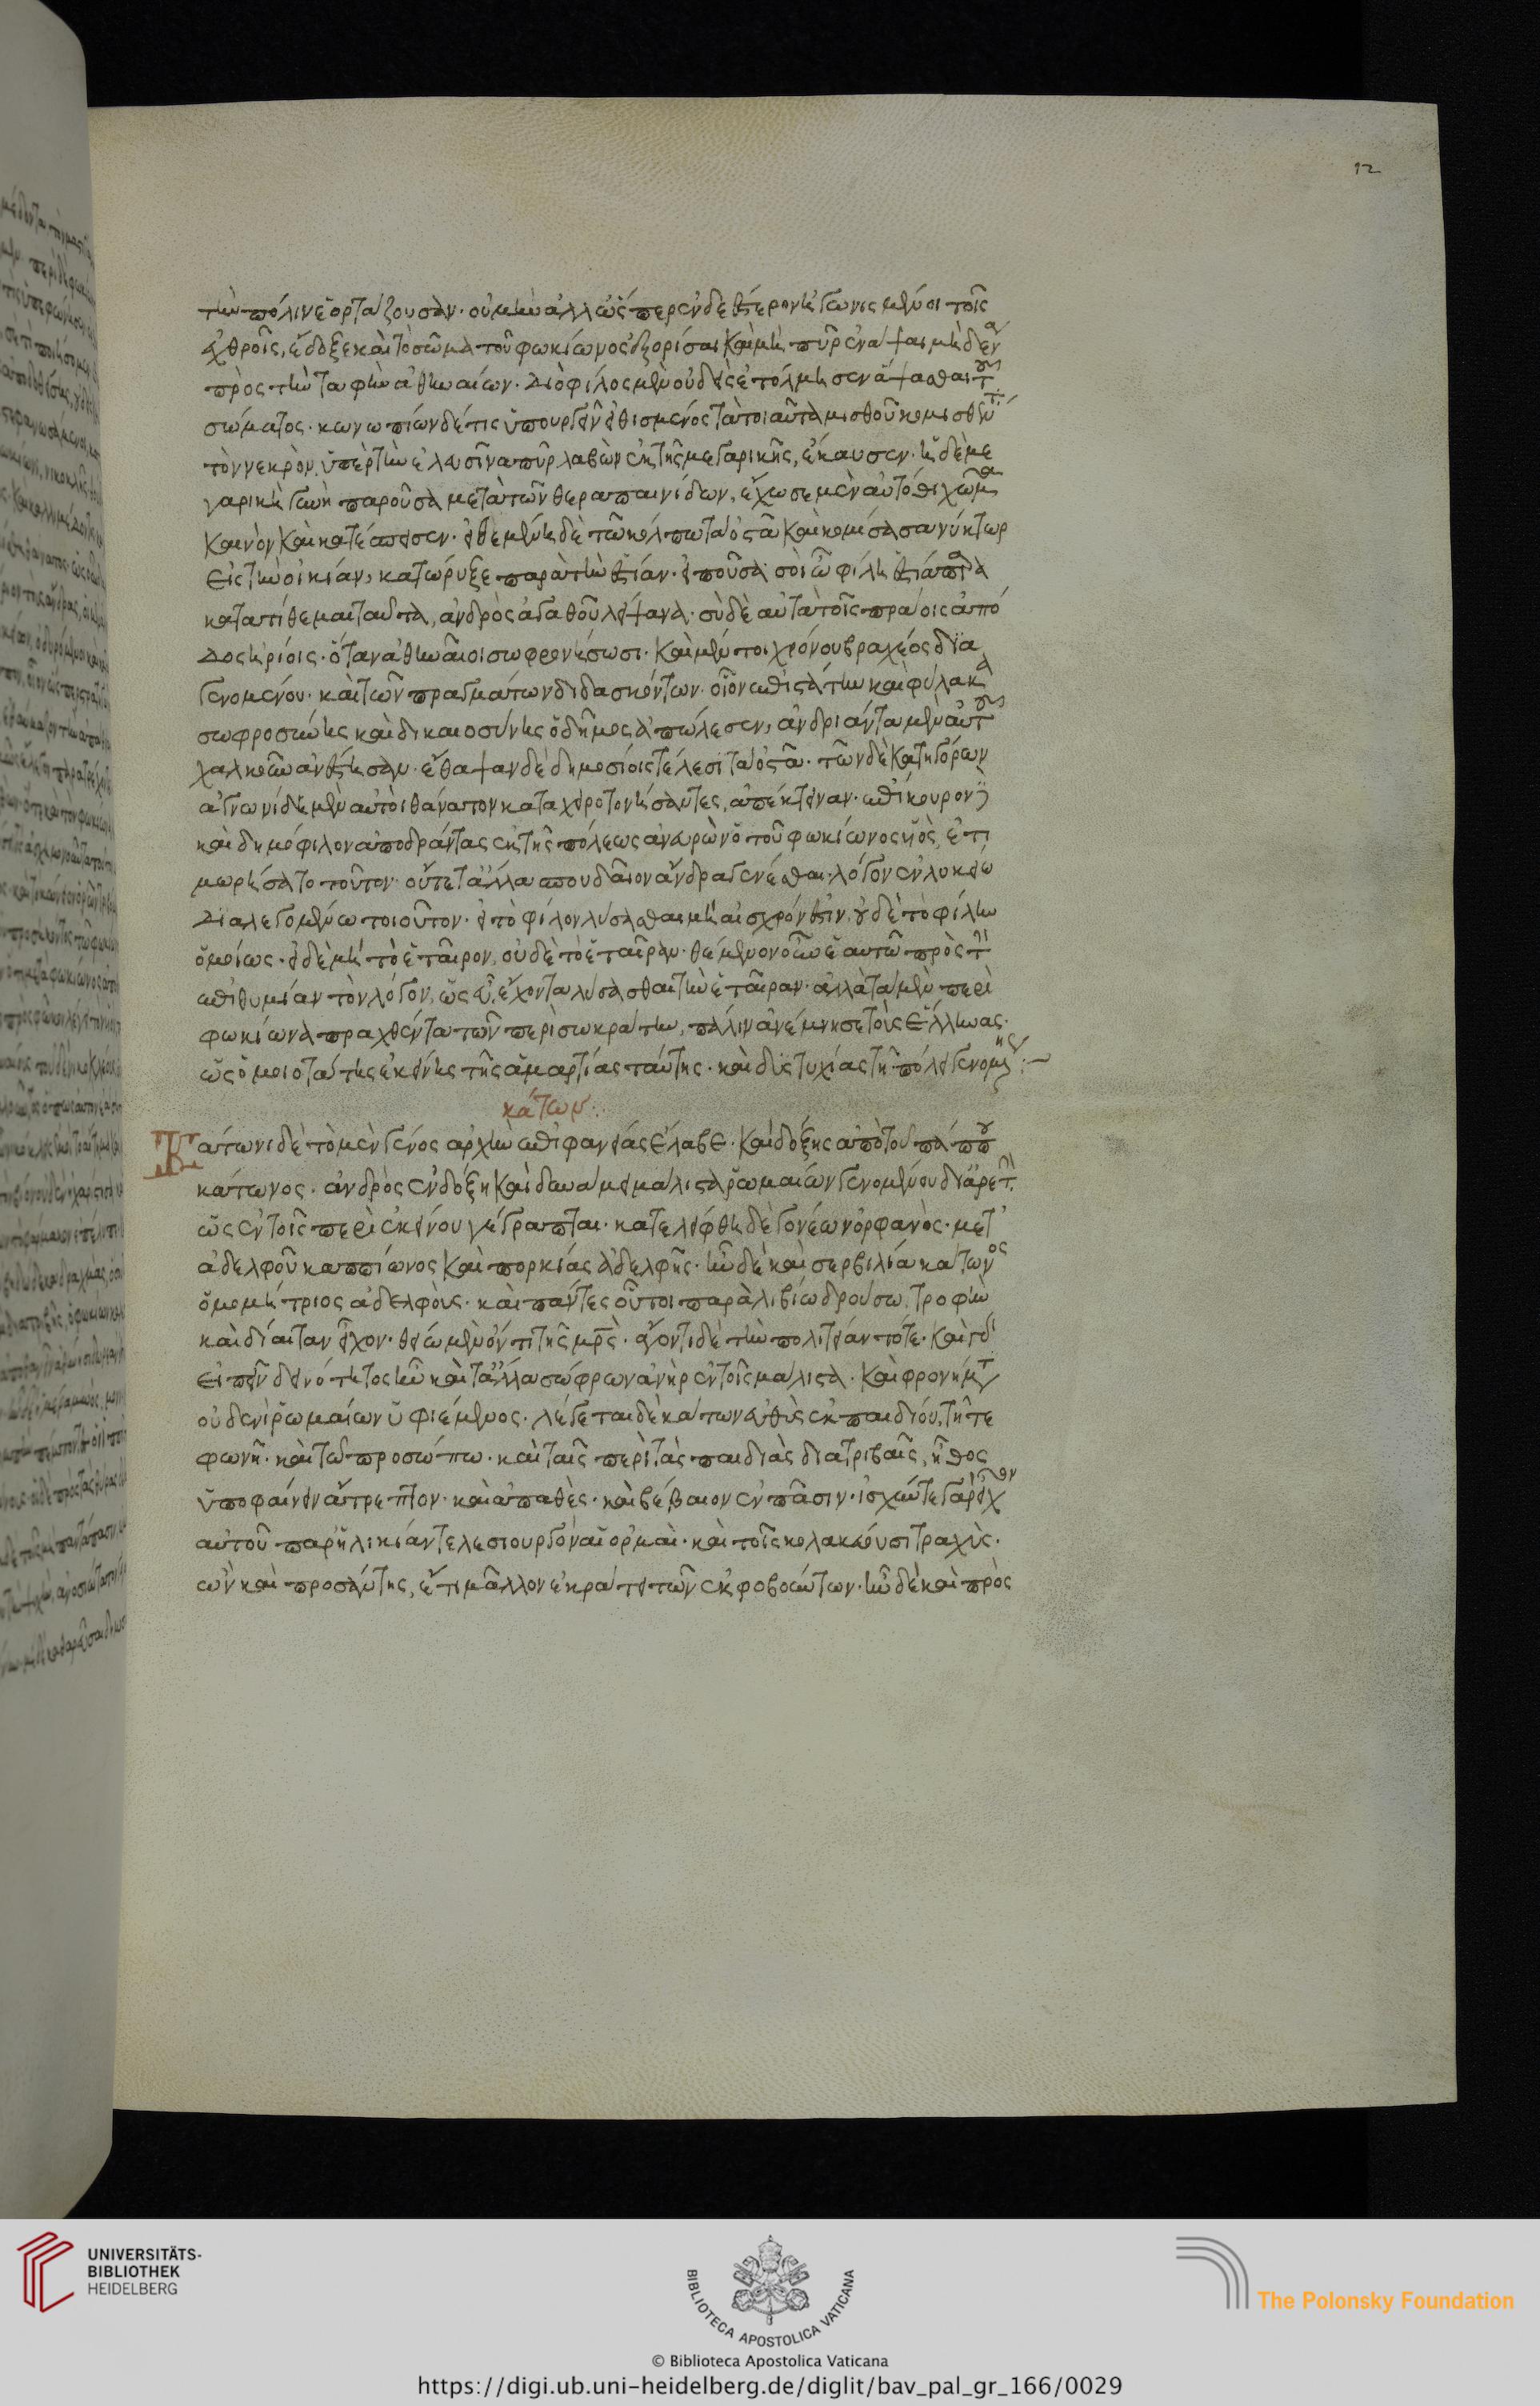 12
τὴν πόλιν ἑορτάζουσαν· οὐ μὴν ἀλλ ὥσπερ ἐνδεέστερον ἠγωνισμένοι τοῖς
ἐχθροῖς, ἔδοξε καὶ τὸ σῶμα τοῦ φωκίωνος ἐξορίσαι καὶ μὴ πῦρ ἐναῦσαι μηδένα
πρὸς τὴν ταφὴν ἀθηναίων. Διὸ φίλος μὲν οὐδεὶς ἐτόλμησεν ἅψασθαι τοῦ
σώματος· κωνωπίων δέ τις ὑπουργεῖν εἰθισμένος τὰ τοιαῦτα μισθοῦ κομισθέντα
τὸν νεκρὸν ὑπὲρ τὴν ἐλευσῖνα πῦρ λαβὼν ἐκ τῆς μεγαρικῆς, ἔκαυσεν· ἡ δὲ με
γαρικὴ γυνὴ παροῦσα μετὰ τῶν θεραπαινίδων, ἔχωσε μὲν αὐτόθι χῶμα
καινὸν καὶ κατέσπεισεν· ἐνθεμένη δὲ τῶ κόλπω τὰ ὀστᾶ καὶ κομίσασα νύκτωρ
εἰς τὴν οἰκίαν, κατώρυξε παρὰ τὴν ἑστίαν· εἰποῦσα σοὶ ὦ φίλη ἑστία παρα
κατατίθεμαι ταῦτα, ἀνδρὸς ἀγαθοῦ λείψανα· σὺ δὲ αὐτὰ τοῖς πατρώοις ἀπό
δος ἠρίοις· ὅταν ἀθηναῖοι σωφρονήσωσι· καὶ μέν τοι χρόνου βραχέος δια
γενομένου· καὶ τῶν πραγμάτων διδασκόντων· οἷον ἐπιστάτην καὶ φύλακα
σωφροσύνης καὶ δικαιοσύνης ὁ δῆμος ἀπώλεσεν, ἀνδριάντα μὲν αὐτοῦ
χαλκοῦν ἀνέστησαν· ἔθαψαν δὲ δημοσίοις τέλεσι τὰ ὀστᾶ· τῶν δὲ κατηγόρων
ἁγνωνίδην μὲν αὐτοὶ θάνατον καταχειροτονήσαντες, ἀπέκτειναν· ἐπίκουρον
καὶ δημόφιλον ἀποδράντας ἐκ τῆς πόλεως ἀνευρὼν ὁ τοῦ φωκίωνος υἱὸς, ἐτι
μωρήσατο τοῦτον· οὔτε τἄλλα σπουδαῖον ἄνδρα γενέσθαι· λόγον ἐν λυκείω
διαλεγομένω τοιοῦτον· εἰ τὸ φίλον λύσασθαι μὴ αἰσχρόν ἐστιν, οὐδὲ τὸ φίλην
ὁμοίως· εἰ δὲ μὴ τὸ ἑταῖρον, οὐδὲ τὸ ἑταίραν· θέμενον οὖν ἑαυτῶ πρὸς τὴν
ἐπιθυμίαν τὸν λόγον, ὡς εὖ ἔχοντα λύσασθαι τὴν ἑταῖραν· ἀλλὰ τὰ μὲν περὶ
φωκίωνα πραχθέντα τῶν περὶ σωκράτην, πάλιν ἀνέμνησε τοὺς ἕλληνας·
ὡς ὁμοιοτάτης ἐκείνης τῆς ἁμαρτίας ταύτης· καὶ δυστυχίας τῆ πόλει γενομένης :~
κάτων :
Κάτωνι δὲ τὸ μὲν γένος ἀρχὴν ἐπιφανείας ἔλαβε· καὶ δόξης ἀπὸ τοῦ πάππου
κάτωνος· ἀνδρὸς ἐν δόξη καὶ δυνάμει μάλιστα ῥωμαίων γενομένου δι ἀρετὴν·
ὡς ἐν τοῖς περὶ ἐκείνου γέγραπται· κατελείφθη δὲ γονέων ὀρφανὸς· μετ'
ἀδελφοῦ καππίωνος καὶ πορκίας ἀδελφῆς· ἦν δὲ καὶ σερβιλία κάτωνος
ὁμομήτριος ἀδελφὸυς· καὶ πάντες οὗτοι παρὰ λιβίω δρούσω, τροφὴν
καὶ δίαιταν εἶχον· θείω μὲν ὄντι τῆς μητρός· ἄγοντι δὲ τὴν πολιτείαν τότε· καὶ γὰρ
εἰπεῖν δεινότητος ἦν καὶ τἄλλα σώφρων ἀνὴρ ἐν τοῖς μάλιστα· καὶ φρονήματος
οὐδενὶ ῥωμαίων ὑφιέμενος· λέγεται δὲ κάτων εὐθὺς ἐκ παιδίου, τῆ τε
φωνῆ· καὶ τῶ προσώπω· καὶ ταῖς περὶ τὰς παιδιὰς διατριβαῖς, ἦθος
ὑποφαίνειν ἄτρεπτον· καὶ ἀπαθὲς· καὶ βέβαιον ἐν πᾶσιν· ἰσχύν τε γὰρ εἶχον
αὐτοῦ παρ' ἡλικίαν τελεσιουργὸν αἱ ὁρμαὶ· καὶ τοῖς κολακεύουσι τραχὺς·
ὢν καὶ προσάντης, ἔτι μᾶλλον ἐκράτει τῶν ἐκφοβούντων· ἦν δὲ καὶ πρὸς
UNIVERSITÄTS-
BIBLIOTHEK
HEIDELBERG
BIBLIOTECA APOSTOLICA VATICANA
The Polonsky Foundation
© Biblioteca Apostolica Vaticana
https://digi.ub.uni-heidelberg.de/diglit/bav_pal_gr_166/0029